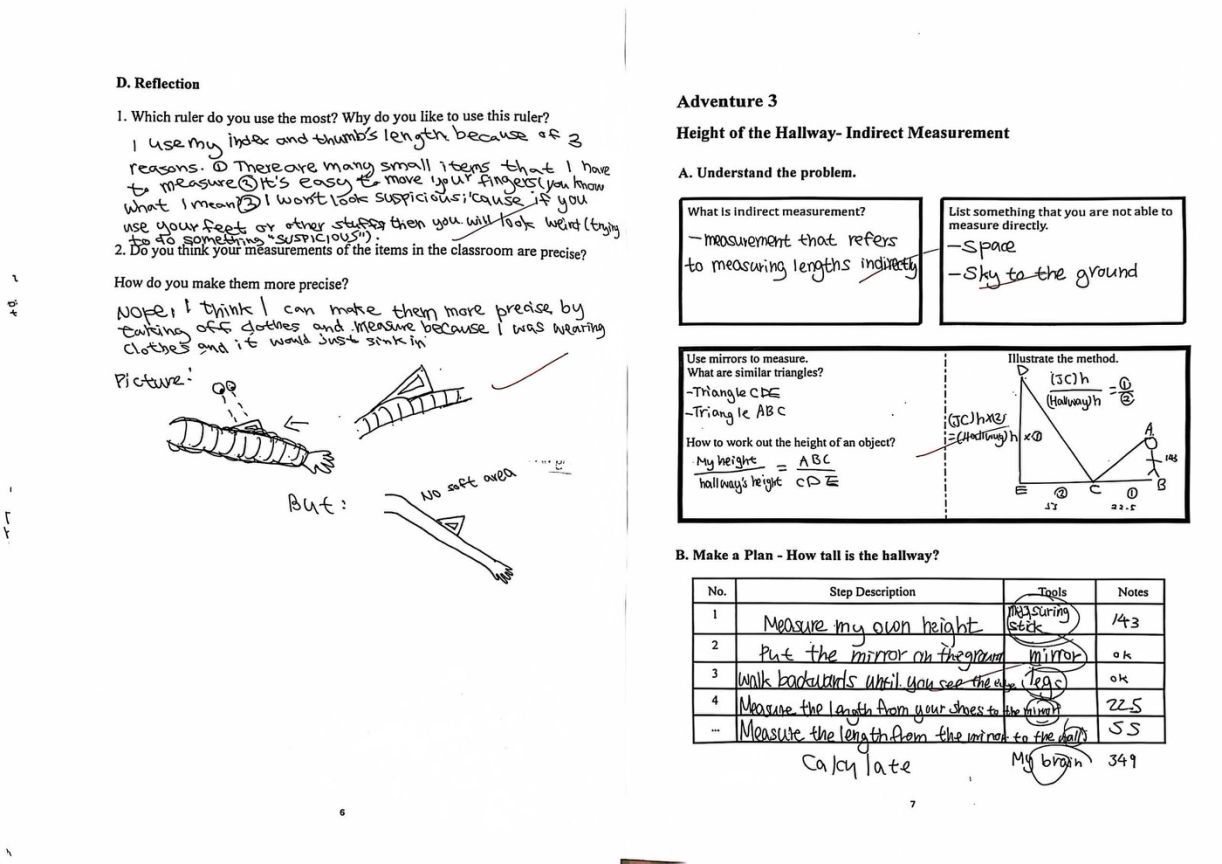 D. Reflection
1. Which ruler do you use the most? Why do you like to use this ruler?
I use my index and thumb's length because of 3
reasons. ① There are many small items that I have
to measure ② It's easy to move your fingers (you know
what I mean) ③ I won't look suspicious, 'cause if you
use your feet or other stuffs then you will look weird (trying
to do something "SUSPICIOUS").
2. Do you think your measurements of the items in the classroom are precise?
How do you make them more precise?
Nope, I think I can make them more precise by
taking off clothes and measure because I was wearing
clothes and it would just sink in
Picture:
But:
No soft area
6
Adventure 3
Height of the Hallway- Indirect Measurement
A. Understand the problem.
What is indirect measurement?
-measurement that refers
to measuring lengths indirectly
List something that you are not able to
measure directly.
-Space
-Sky to the ground
Use mirrors to measure.
What are similar triangles?
-Triangle CDE
-Triangle ABC
How to work out the height of an object?
My height / hallway's height = ABC / CDE
Illustrate the method.
D
(JC)h / (Hallway)h = ① / ②
=(Hallway)h x①
A
143
E ② C ① B
22.5
B. Make a Plan - How tall is the hallway?
No. Step Description Tools Notes
1 Measure my own height measuring stick 143
2 Put the mirror on the ground mirror ok
3 Walk backwards until you see the legs ok
4 Measure the length from your shoes to the mirror 22.5
... Measure the length from the mirror to the 55
Calculate My brain 349
7